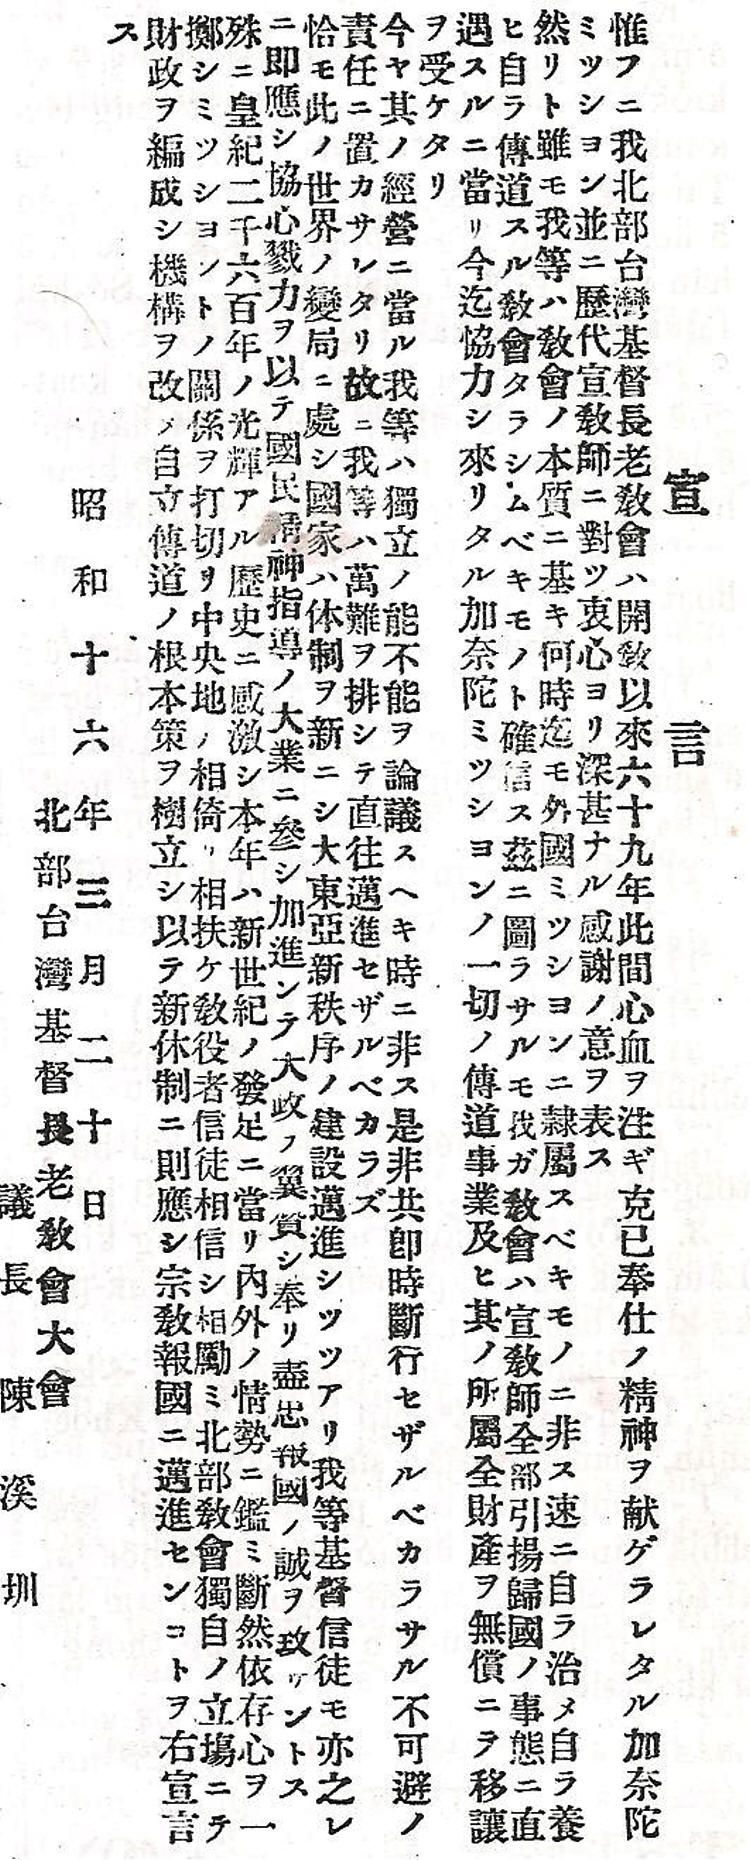 宣言
惟フニ我北部台灣基督長老敎會ハ開敎以來六十九年此間心血ヲ注ギ克已奉仕ノ精神ヲ献ゲラレタル加奈陀
ミツシヨン並ニ歷代宣敎師ニ對ツ衷心ヨリ深甚ナル感謝ノ意ヲ表ス
然リト雖モ我等ハ敎會ノ本質ニ基キ何時迄モ外國ミツシヨンニ隷屬スベキモノニ非ス速ニ自ラ治メ自ラ養
ヒ自ラ傳道スル敎會タラシムベキモノト確信ス茲ニ圖ラサルモ我ガ敎會ハ宣敎師全部引揚歸國ノ事態ニ直
遇スルニ當リ今迄協力シ來リタル加奈陀ミツシヨンノ一切ノ傳道事業及ヒ其ノ所屬全財產ヲ無償ニテ移讓
ヲ受ケタリ
今ヤ其ノ經營ニ當ル我等ハ獨立ノ能不能ヲ論議スヘキ時ニ非ス是非共卽時斷行セザルベカラサル不可避ノ
責任ニ置カサレタリ故ニ我等ハ萬難ヲ排シテ直往邁進セザルベカラズ
恰モ此ノ世界ノ變局ニ處シ國家ハ体制ヲ新ニシ大東亞新秩序ノ建設邁進シツツアリ我等基督信徒モ亦之レ
ニ即應シ協心戮力ヲ以テ國民精神指導ノ大業ニ參シ加進ンテ大政ノ翼賛シ奉リ盡忠報國ノ誠ヲ致サントス
殊ニ皇紀二千六百年ノ光輝アル歷史ニ感激シ本年ハ新世紀ノ發足ニ當リ內外ノ情勢ニ鑑ミ斷然依存心ヲ一
擲シミツシヨントノ關係ヲ打切リ中央地ノ相倚リ相扶ケ敎役者信徒相信シ相勵ミ北部敎會獨自ノ立塲ニテ
財政ヲ編成シ機構ヲ改メ自立傳道ノ根本策ヲ樹立シ以テ新体制ニ則應シ宗敎報國ニ邁進センコトヲ右宣言
ス
昭和十六年三月二十日
北部台灣基督長老敎會大會
議長 陳溪圳